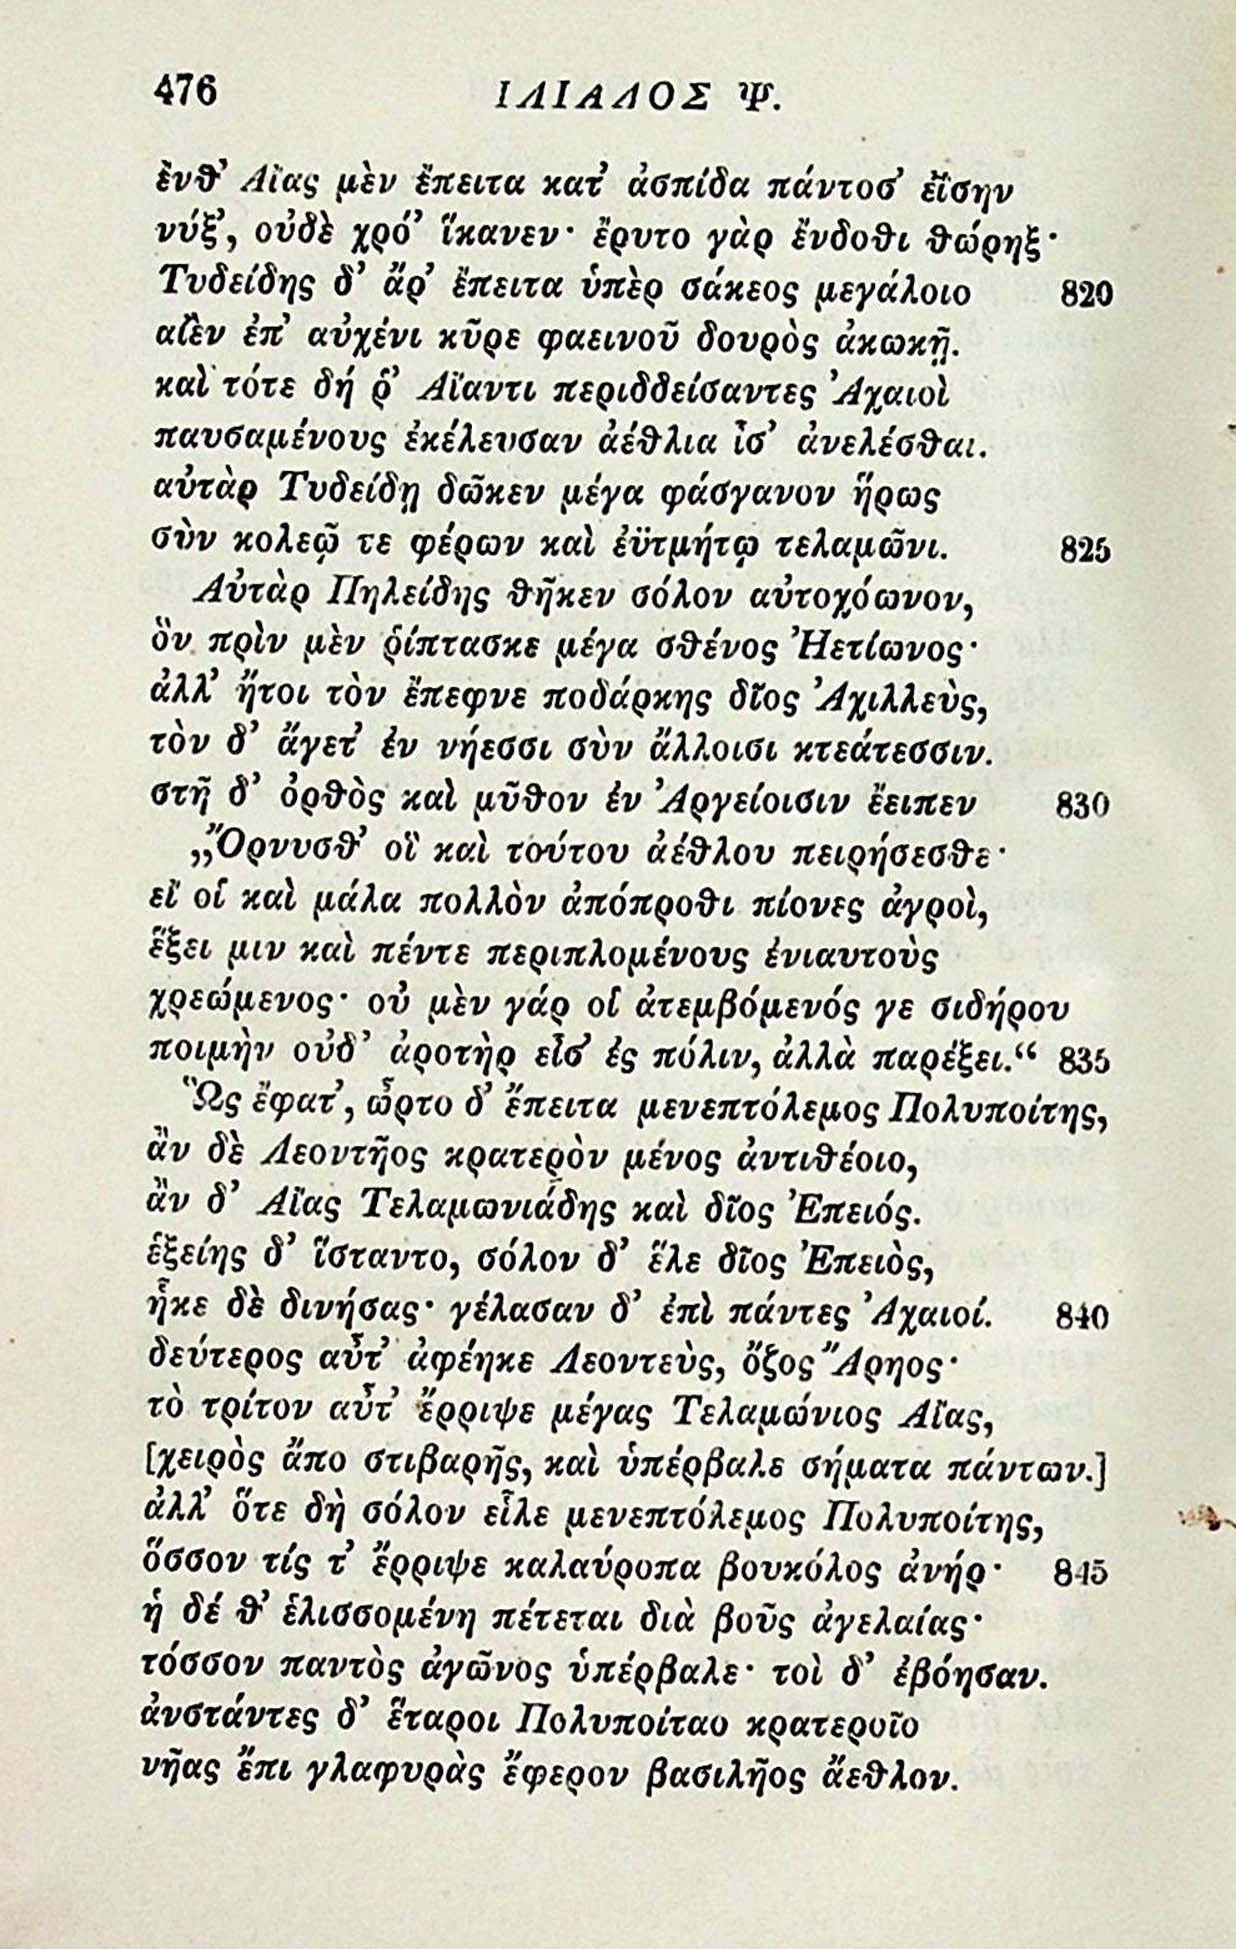 476 ΙΛΙΑΔΟΣ Ψ.
ἐνθ’ Αἴας μὲν ἔπειτα κατ’ ἀσπίδα πάντοσ’ ἐΐσην
νύξ’, οὐδὲ χρό’ ἵκανεν· ἔρυτο γὰρ ἔνδοθι θώρηξ·
Τυδείδης δ’ ἄρ’ ἔπειτα ὑπὲρ σάκεος μεγάλοιο 820
αἰὲν ἐπ’ αὐχένι κῦρε φαεινοῦ δουρὸς ἀκωκῇ.
καὶ τότε δή ῥ’ Αἴαντι περιδδείσαντες Ἀχαιοὶ
παυσαμένους ἐκέλευσαν ἀέθλια ἶσ’ ἀνελέσθαι.
αὐτὰρ Τυδείδῃ δῶκεν μέγα φάσγανον ἥρως
σὺν κολεῷ τε φέρων καὶ ἐϋτμήτῳ τελαμῶνι. 825
Αὐτὰρ Πηλείδης θῆκεν σόλον αὐτοχόωνον,
ὃν πρὶν μὲν ῥίπτασκε μέγα σθένος Ἠετίωνος·
ἀλλ’ ἤτοι τὸν ἔπεφνε ποδάρκης δῖος Ἀχιλλεὺς,
τὸν δ’ ἄγετ’ ἐν νήεσσι σὺν ἄλλοισι κτεάτεσσιν.
στῆ δ’ ὀρθὸς καὶ μῦθον ἐν Ἀργείοισιν ἔειπεν 830
„Ὄρνυσθ’ οἳ καὶ τούτου ἀέθλου πειρήσεσθε·
εἴ οἱ καὶ μάλα πολλὸν ἀπόπροθι πίονες ἀγροὶ,
ἕξει μιν καὶ πέντε περιπλομένους ἐνιαυτοὺς
χρεώμενος· οὐ μὲν γάρ οἱ ἀτεμβόμενός γε σιδήρου
ποιμὴν οὐδ’ ἀροτὴρ εἶσ’ ἐς πόλιν, ἀλλὰ παρέξει.“ 835
Ὣς ἔφατ’, ὦρτο δ’ ἔπειτα μενεπτόλεμος Πολυποίτης,
ἂν δὲ Λεοντῆος κρατερὸν μένος ἀντιθέοιο,
ἂν δ’ Αἴας Τελαμωνιάδης καὶ δῖος Ἐπειός.
ἑξείης δ’ ἵσταντο, σόλον δ’ ἕλε δῖος Ἐπειὸς,
ἧκε δὲ δινήσας· γέλασαν δ’ ἐπὶ πάντες Ἀχαιοί. 840
δεύτερος αὖτ’ ἀφέηκε Λεοντεὺς, ὄζος Ἄρηος·
τὸ τρίτον αὖτ’ ἔρριψε μέγας Τελαμώνιος Αἴας,
[χειρὸς ἄπο στιβαρῆς, καὶ ὑπέρβαλε σήματα πάντων.]
ἀλλ’ ὅτε δὴ σόλον εἷλε μενεπτόλεμος Πολυποίτης,
ὅσσον τίς τ’ ἔρριψε καλαύροπα βουκόλος ἀνήρ· 845
ἡ δέ θ’ ἑλισσομένη πέτεται διὰ βοῦς ἀγελαίας·
τόσσον παντὸς ἀγῶνος ὑπέρβαλε· τοὶ δ’ ἐβόησαν.
ἀνστάντες δ’ ἕταροι Πολυποίταο κρατεροῖο
νῆας ἔπι γλαφυρὰς ἔφερον βασιλῆος ἄεθλον.